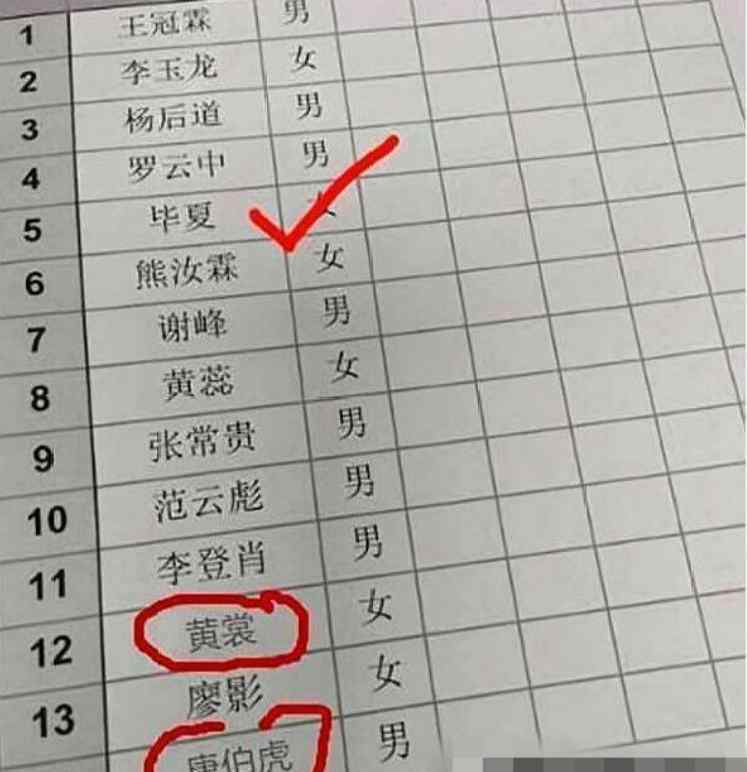 1 王冠霖 男
2 李玉龙 女
3 杨后道 男
4 罗云中 男
5 毕夏
6 熊汝霖 女
7 谢峰 男
8 黄蕊 女
9 张常贵 男
10 范云彪 男
11 李登肖 男
12 黄裳 女
13 廖影 女
唐伯虎 男